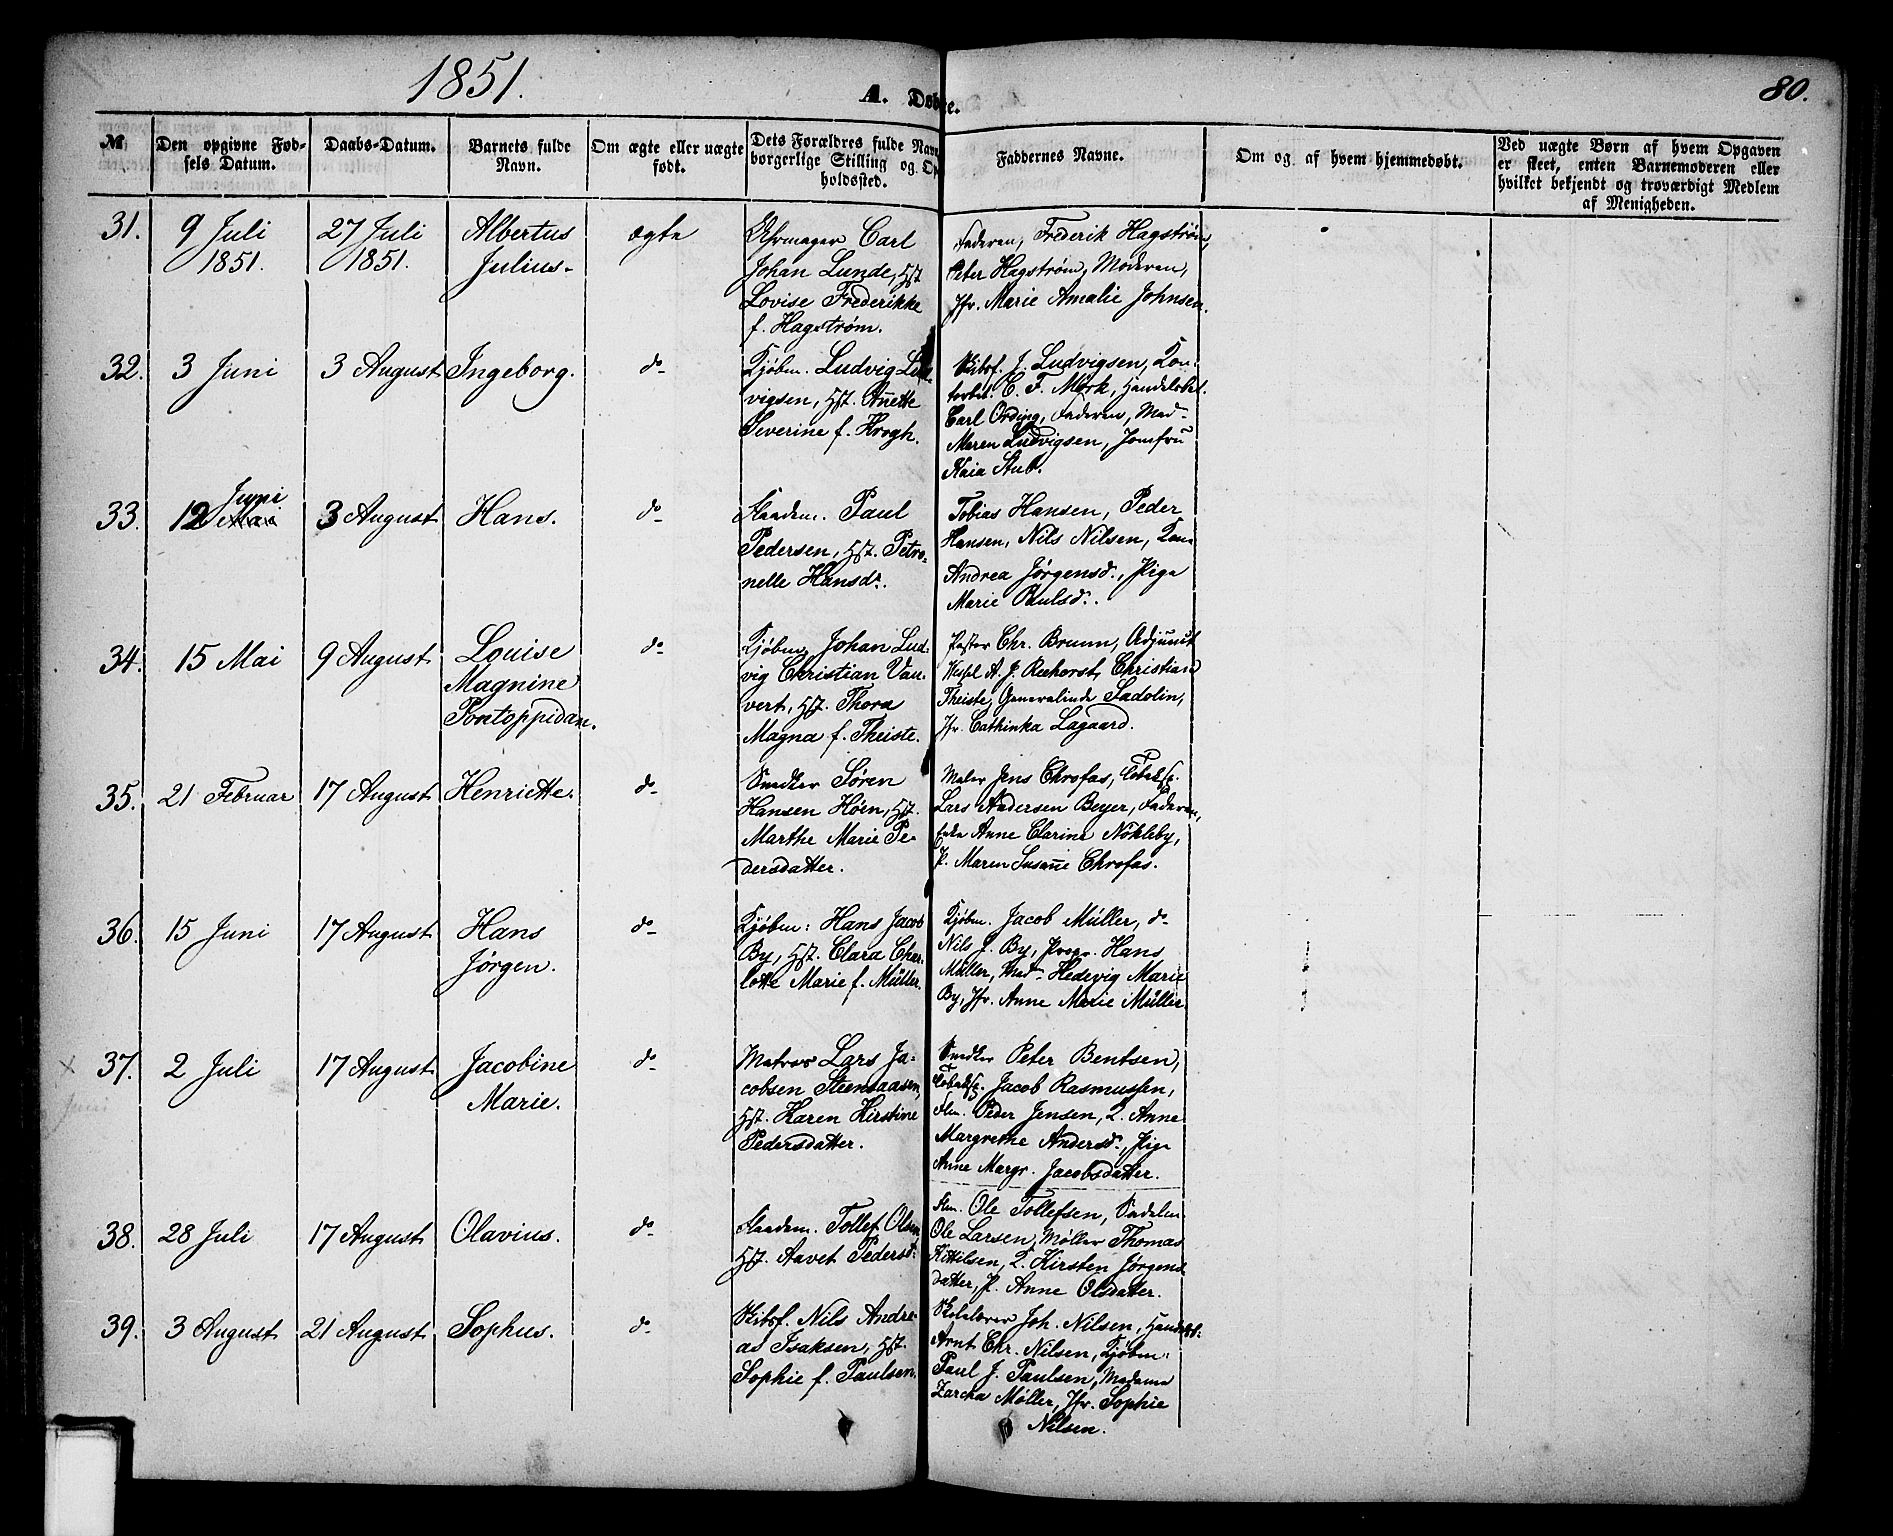 1851.
A. Døbte.
80.
№
Den opgivne Fødsels Datum.
Daabs-Datum.
Barnets fulde Navn.
Om ægte eller uægte født.
Dets Forældres fulde Navn
borgerlige Stilling og Op
holdssted.
Faddernes Navne.
Om og af hvem hjemmedøbt.
Ved uægte Børn af hvem Opgaven
er skeet, enten Barnemoderen eller
hvilket bekjendt og troværdigt Medlem
af Menigheden.
31.
9 Juli
1851.
27 Juli
1851.
Albertus
Julius.
ægte
Carl
Johan Lunde, Hst
Lovise Frederikke
f. Hagstrøm.
Faderen, Frederik Hagstrøm,
Peter Hagstrøm, Moderen,
Jfr. Marie Amalie Johnsen.
32.
3 Juni
3 August
Ingeborg.
do
Kjøbm. Ludvig Lud
vigsen, Hst. Anette
Severine f. Krogh.
Skibsf. J. Ludvigsen, Kon-
torbet. C. F. Mørk, Handelsbet.
Carl Ording, Faderen, Mad-
Maren Ludvigsen, Jomfru
Kaia Stub.
33.
Juni
12 Mai
3 August
Hans.
do
Paul
Pedersen, Hst. Petro-
nelle Hansdr.
Tobias Hansen, Peder
Hansen, Nils Nilsen, Kone
Andrea Jørgensd., Pige
Marie Paulsdr.
34.
15 Mai
9 August
Louise
Magnine
Pontoppidan.
do
Kjøbm. Johan Lud-
vig Christian Vau-
vert, Hst. Thora
Magna f. Theiste.
Pastor Chr. Bruun, Adjunkt
A. J. Reehorst, Christian
Theiste, Generalinde Sadolin,
Jfr. Cathinka Lagaard.
35.
21 Februar
17 August
Henriette.
do
Snedker Søren
Hansen Høen, Hst.
Marthe Marie Pe-
dersdatter.
Maler Jens Chrofas,
Lars Andersen Beyer, Faderen,
Enke Anne Clarine Nökleby,
P. Maren Susanne Chrofas.
36.
15 Juni
17 August
Hans
Jørgen.
do
Kjøbm: Hans Jacob
By, Hst. Clara Char-
lotte Marie f. Müller.
Kjøbm. Jacob Müller, do
Nils J. By, Propr. Hans
Müller, Mad. Hedevig Marie
By, Jfr. Anne Marie Müller
37.
2 Juli
Juni
17 August
Jacobine
Marie.
do
Matros Lars Ja-
cobsen Steensaasen,
Hst. Karen Kirstine
Pedersdatter.
Snedker Peter Bentsen,
Jacob Rasmussen,
Flm. Peder Jensen, K. Anne
Margrethe Andersdr., Pige
Anne Margr. Jacobsdatter.
38.
28 Juli
17 August
Olavius.
do
Tollef Olsen
Hst. Aavet Pedersd:
Flm. Ole Tollefsen,
Ole Larsen, Møller Thomas
Kittilsen, K. Kirsten Jørgens-
datter, P. Anne Olsdatter.
39.
3 August
21 August
Sophus.
do
Skibsf. Nils Andre-
as Isaksen, Hst.
Sophie f. Paulsen.
Skolelærer Joh. Nilsen, Handelsb:
Arnt Chr. Nilsen, Kjøbm:
Paul J. Paulsen, Madame
Zarcha Møller, Jfr. Sophie
Nilsen.